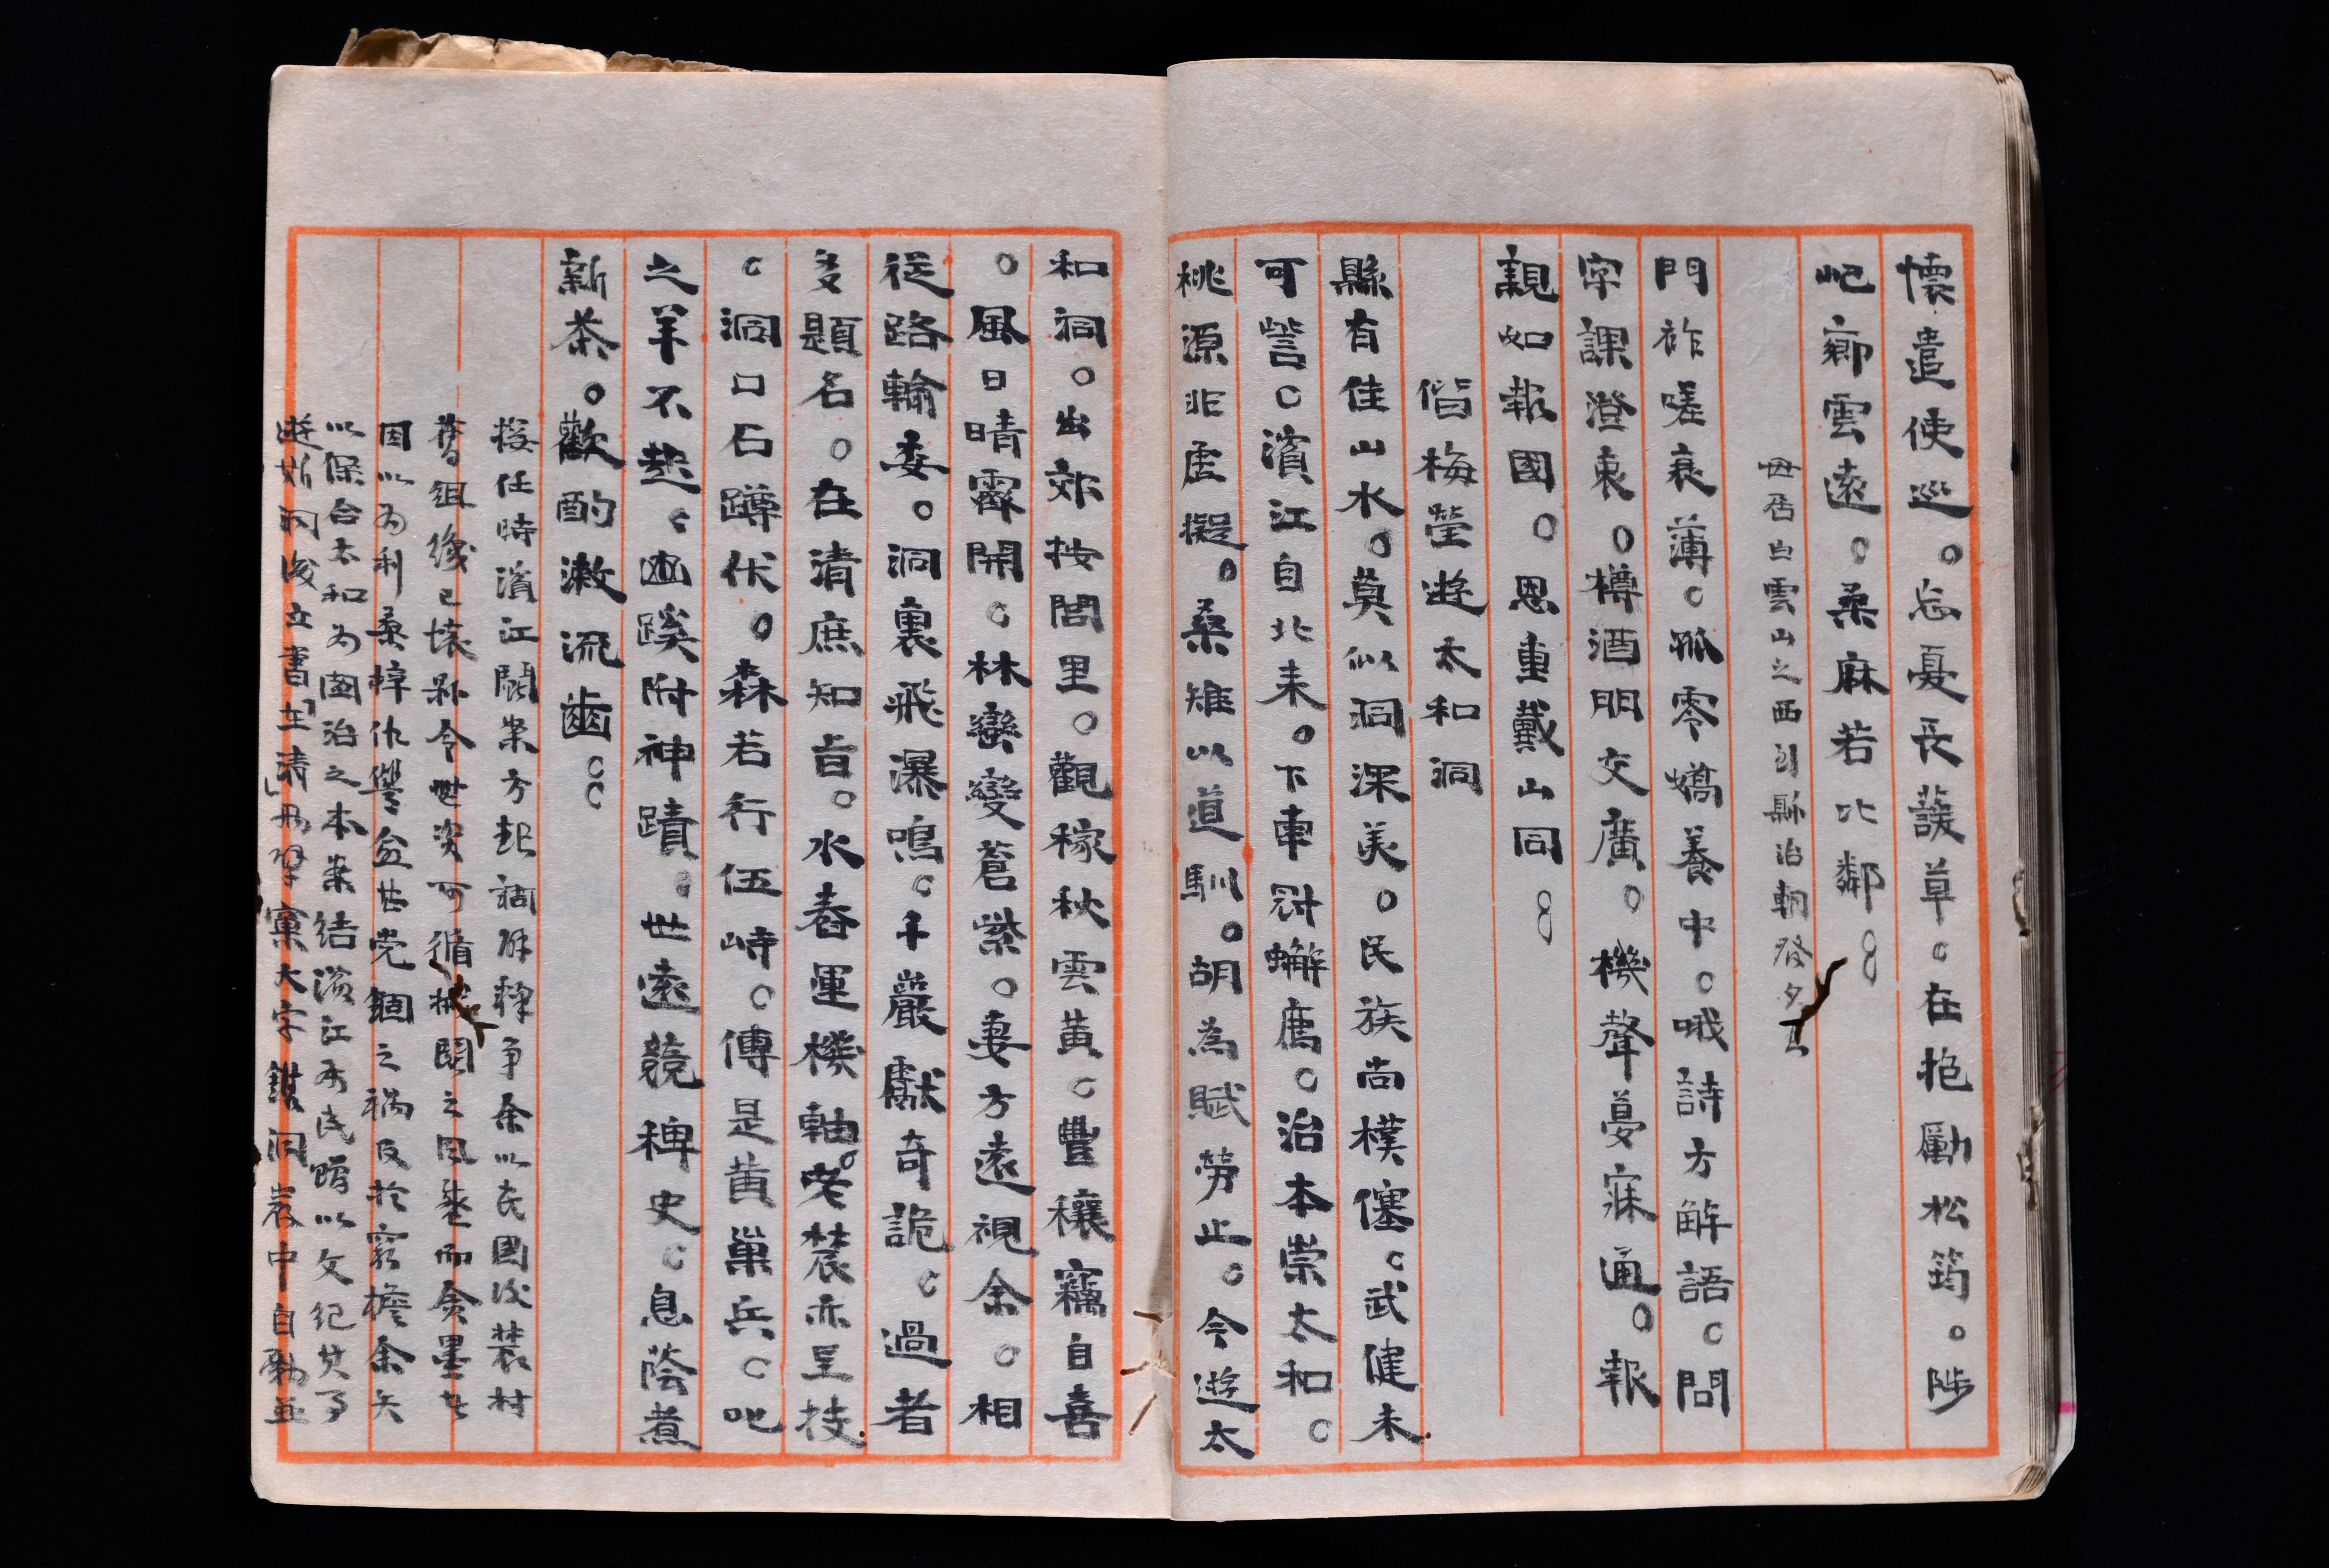 懷遣使巡。忘憂長護草。在抱勵松筠。陟
屺鄉雲遠。桑麻若比鄰。
毋居白雲山之西引縣治朝發夕
門祚嗟衰薄。孤零嬌養中。哦詩方解語。問
字課澄衷。樽酒朋交廣。機聲曼寐通。報
親如報國。恩重戴山同。
偕梅瑩遊太和洞
縣有佳山水。莫似洞深美。民族尚樸僿。武健未
可訾。濱江自北来。下車冠蠏廌。治本崇太和。
桃源非虛擬。桑雉以道馴。胡為賦勞止。今遊太
和洞。出郊按閭里。觀稼秋雲黄。豐穰竊自喜
。風日晴霽開。林巒變蒼紫。妻方遠視余。相
從路輸委。洞裏飛瀑鳴。千巖獻奇詭。過者
多題名。在清庶知旨。水舂運機軸。老農亦呈技
。洞口石蹲伏。森若行伍峙。傳是黄巢兵。叱
之羊不起。幽蹊附神蹟。世遠競稗史。息蔭煮
新茶。歡酌漱流齒。
接任時濱江鬬案方起調解釋爭余以民國後農村
舊組織已壞縣令世資可循械鬬之風熾而貪墨者
因以為利桑梓仇舋益甚党錮之禍及於窮檐余矢
以保合太和為國治之本案結濱江市民贈以文紀其事
遊斯洞後立書在清為擘窠大字鐫洞巖中自勵並